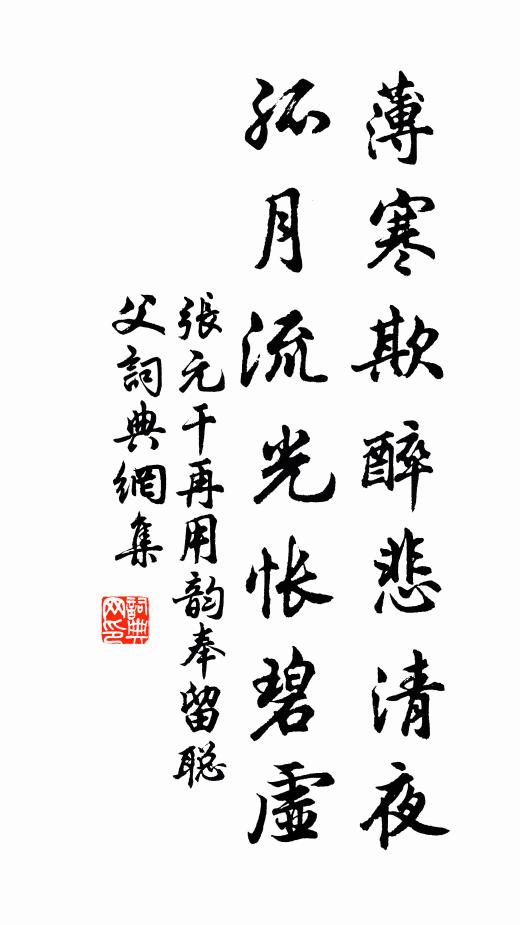 薄寒欺醉悲清夜
孤月流光悵碧虛
張元干再用韵奉留聪
父詞典網集
詞典网印